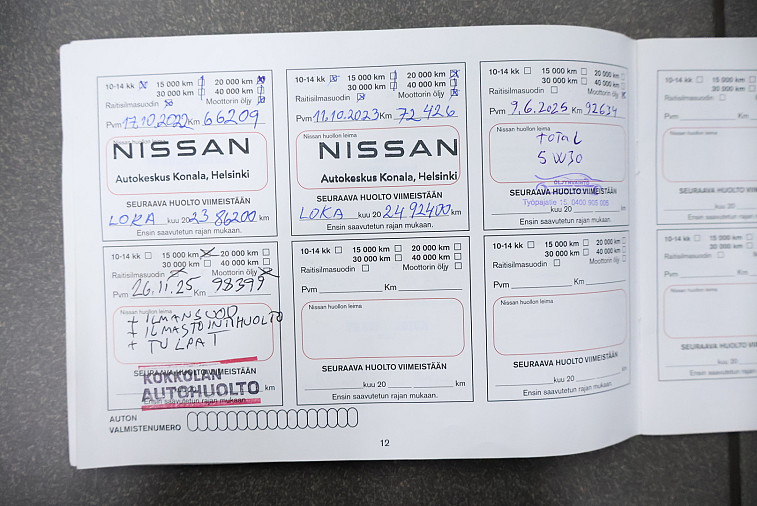 10-14 kk 15 000 km 20 000 km
30 000 km 40 000 km
Raitisilmasuodin Moottorin öljy
Pvm 17.10.2022 Km 66209
Nissan huollon leima
NISSAN
Autokeskus Konala, Helsinki
SEURAAVA HUOLTO VIIMEISTÄÄN
LOKA kuu 2023 86200 km
Ensin saavutetun rajan mukaan.
10-14 kk 15 000 km 20 000 km
30 000 km 40 000 km
Raitisilmasuodin Moottorin öljy
Pvm 11.10.2023 Km 72426
NISSAN
Autokeskus Konala, Helsinki
SEURAAVA HUOLTO VIIMEISTÄÄN
LOKA kuu 2024 92400 km
Ensin saavutetun rajan mukaan.
10-14 kk 15 000 km 20 000 km
30 000 km 40 000 km
Raitisilmasuodin Moottorin öljy
Pvm 9.6.2025 Km 92634
Nissan huollon leima
TOTAL
5W30
SEURAAVA HUOLTO VIIMEISTÄÄN
Ensin saavutetun rajan mukaan.
15 000 km
30 000 km
Raitisilmasuodin
Pvm
Nissan huollon leima
SEURAAVA HUOLTO
10-14 kk 15 000 km 20 000 km
30 000 km 40 000 km
Raitisilmasuodin Moottorin öljy
Pvm 26.11.25 Km 98399
Nissan huollon leima
+ ILMANSUOD
+ ILMASTOINTIHUOLTO
+ TULPAT
SEURAAVA HUOLTO VIIMEISTÄÄN
KOKKOLAN
AUTOHUOLTO
Ensin saavutetun rajan mukaan.
10-14 kk 15 000 km 20 000 km
30 000 km 40 000 km
Raitisilmasuodin Moottorin öljy
Pvm Km
Nissan huollon leima
SEURAAVA HUOLTO VIIMEISTÄÄN
kuu 20 km
Ensin saavutetun rajan mukaan.
10-14 kk 15 000 km 20 000 km
30 000 km 40 000 km
Raitisilmasuodin Moottorin öljy
Pvm Km
Nissan huollon leima
SEURAAVA HUOLTO VIIMEISTÄÄN
kuu 20 km
Ensin saavutetun rajan mukaan.
15 000 km
30 000 km
Raitisilmasuodin
Pvm
Nissan huollon leima
SEURAAVA HUOLTO
kuu 20
AUTON
VALMISTENUMERO
12